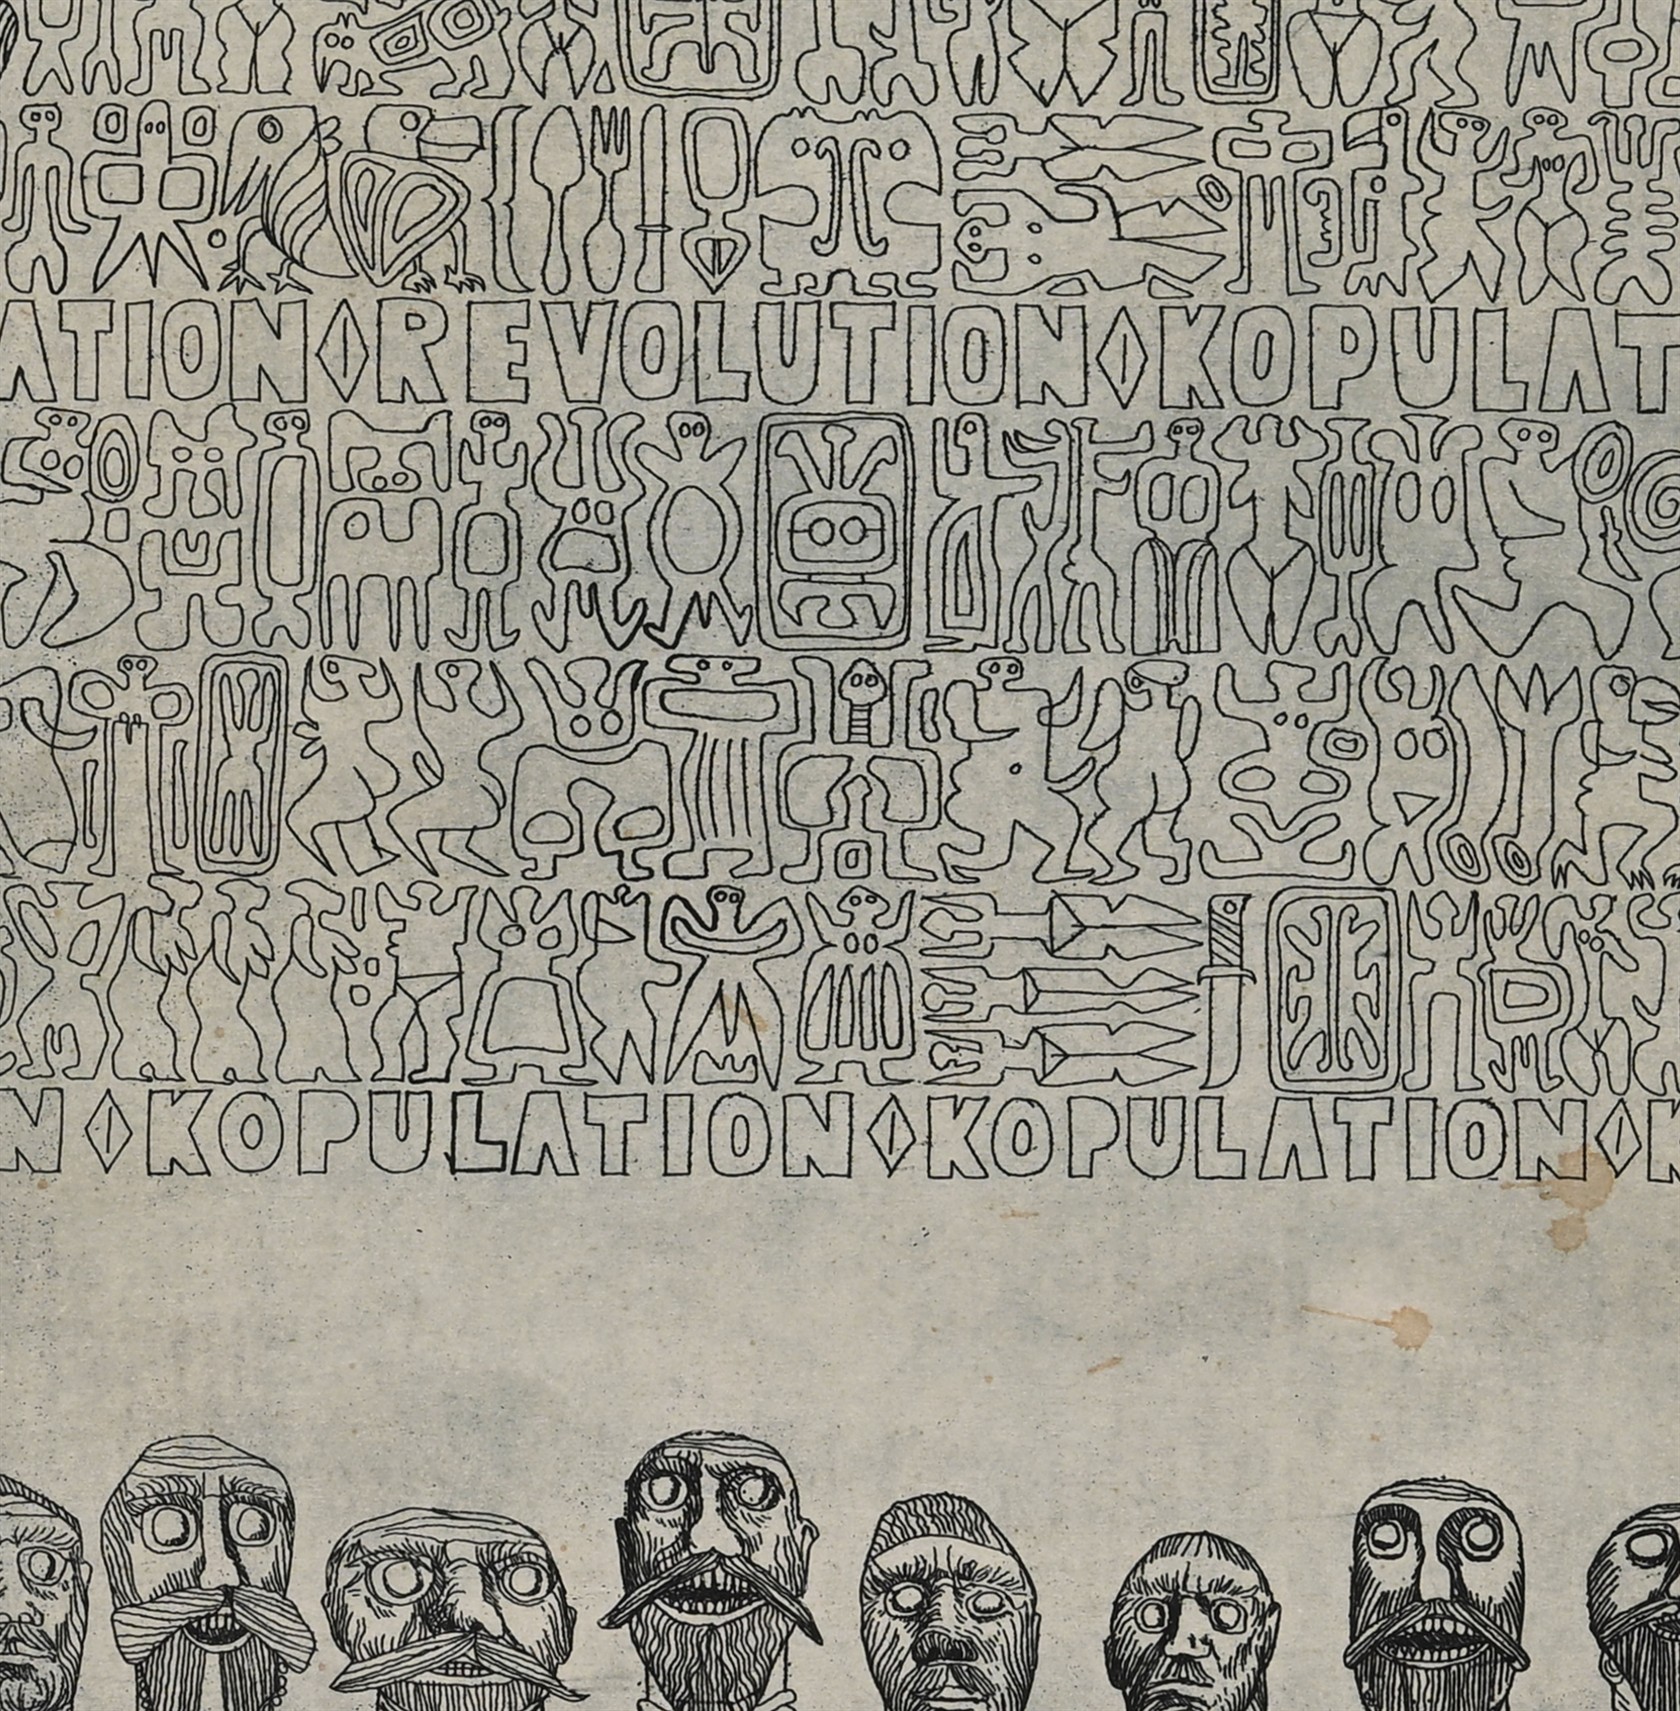 ATION◊REVOLUTION◊KOPULAT
N◊KOPULATION◊KOPULATION◊K